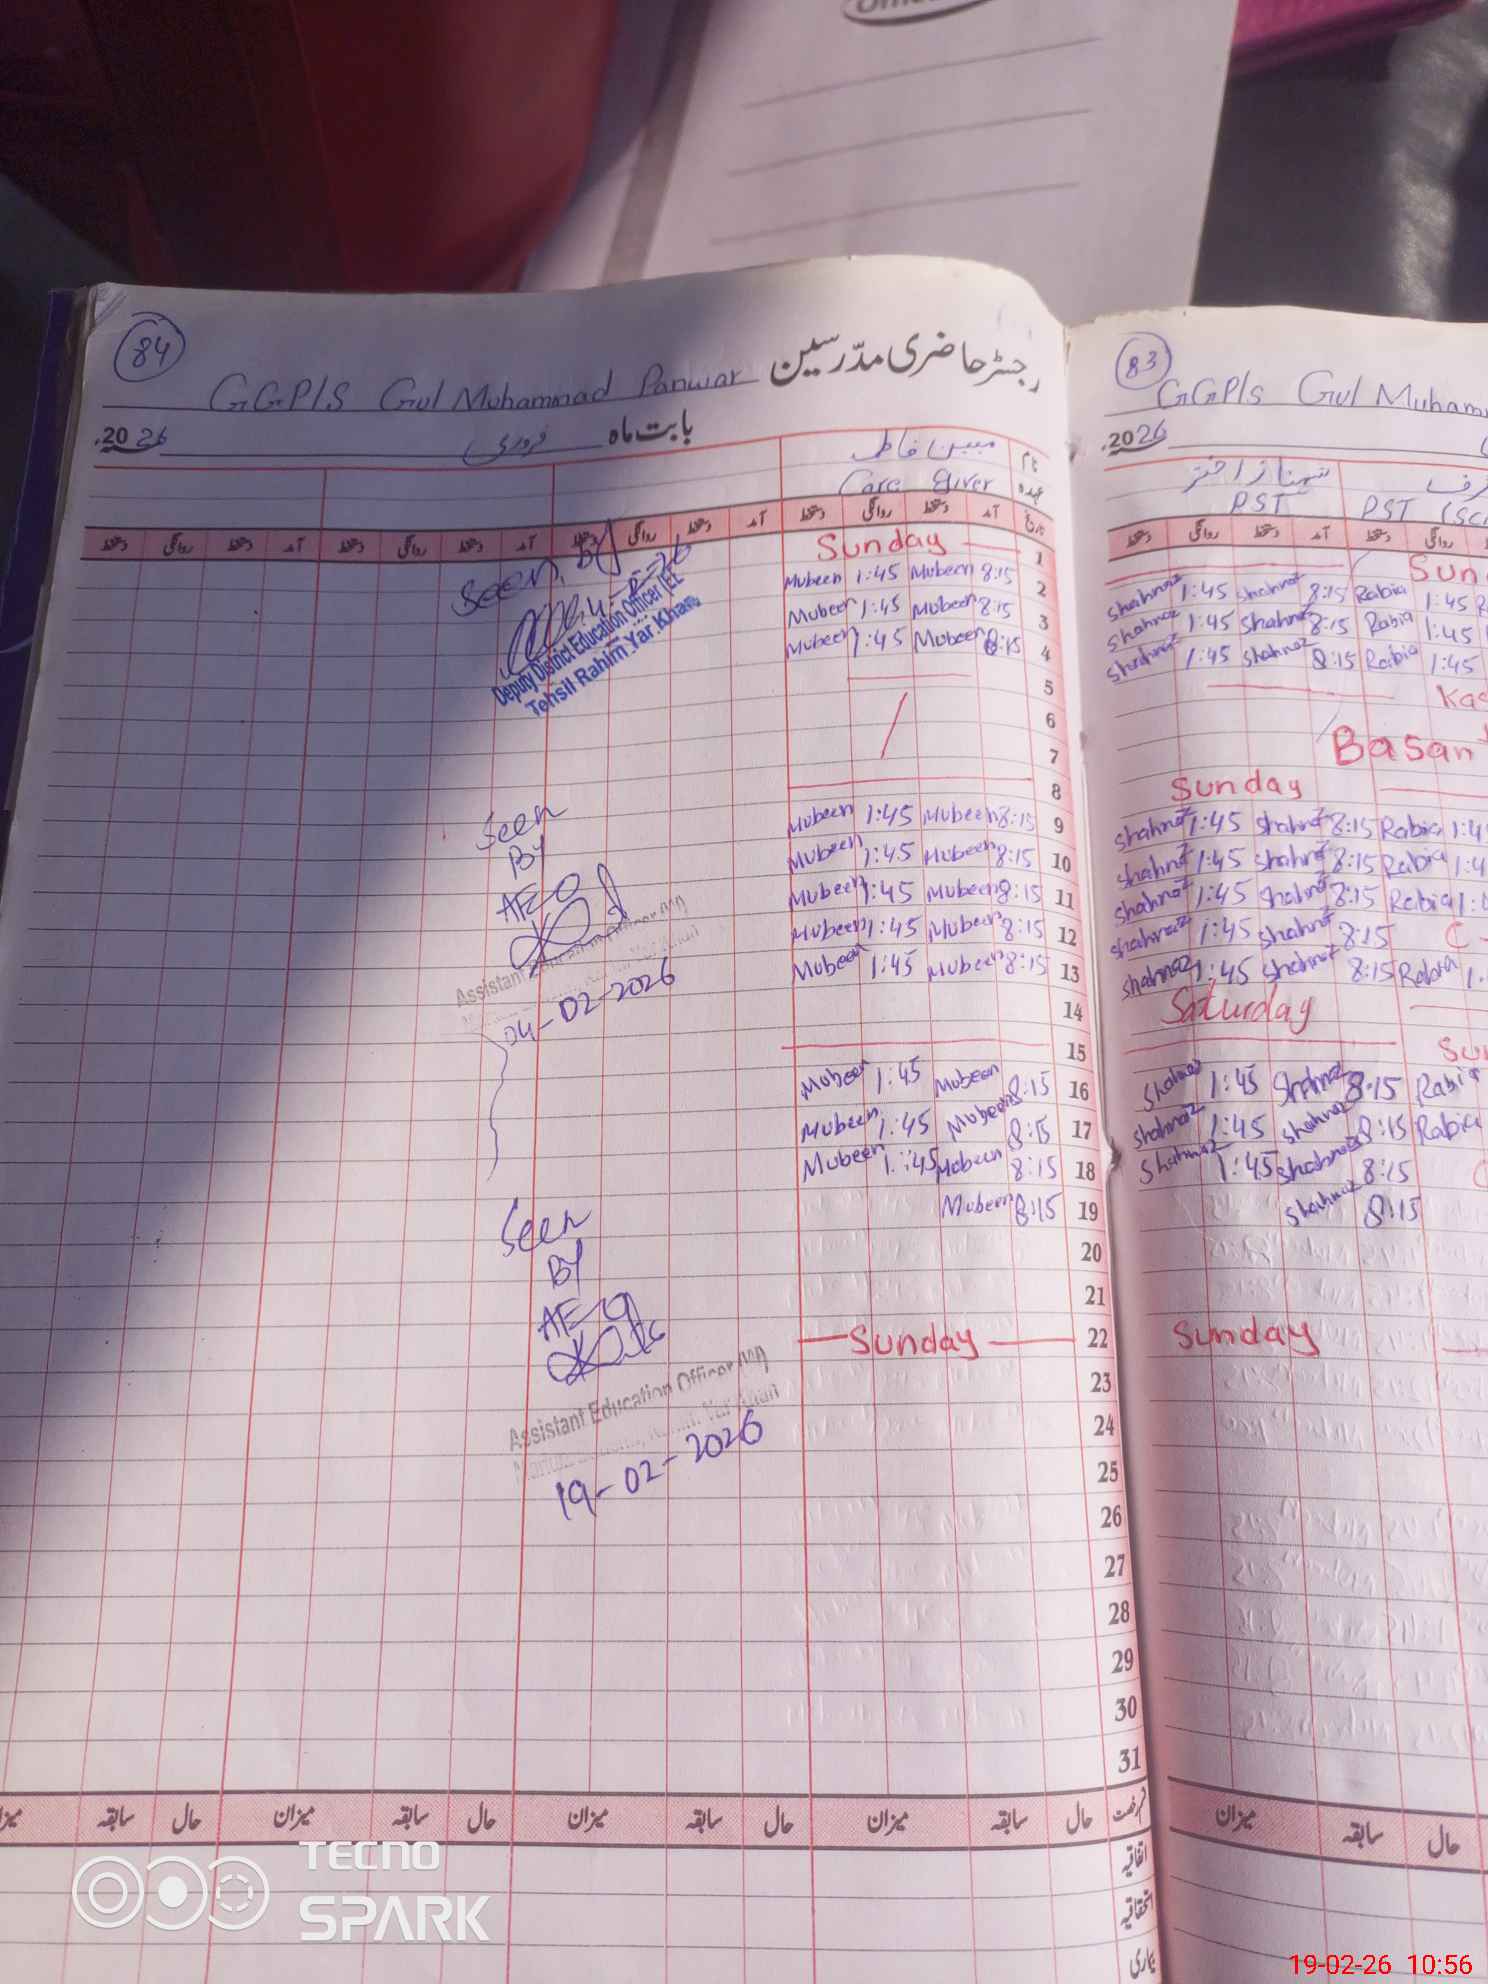 84
رجسٹر حاضری مدرسین
GGPS Gul Muhammad Panwar
2026 بابت ماہ فروری
نام مبین فاطمہ
عہدہ Care Giver
تاریخ آمد دستخط روانگی دستخط آمد دستخط روانگی دستخط آمد دستخط روانگی دستخط آمد دستخط روانگی دستخط
1 Sunday
Mubeen 1:45 Mubeen 8:15 2
Mubeen 1:45 Mubeen 8:15 3
Mubeen 1:45 Mubeen 8:15 4
5
6
7
8
Mubeen 1:45 Mubeen 8:15 9
Mubeen 1:45 Mubeen 8:15 10
Mubeen 1:45 Mubeen 8:15 11
Mubeen 1:45 Mubeen 8:15 12
Mubeen 1:45 Mubeen 8:15 13
14
15
Mubeen 1:45 Mubeen 8:15 16
Mubeen 1:45 Mubeen 8:15 17
Mubeen 1:45 Mubeen 8:15 18
Mubeen 8:15 19
20
21
Sunday 22
23
24
25
26
27
28
29
30
31
Seen By
Deputy District Education Officer
Tehsil Rahim Yar Khan
Seen
By
AEO
Assistant Education Officer
04-02-2026
Seen
By
AEO
Assistant Education Officer
19-02-2026
حال سابقہ میزان حال سابقہ میزان حال سابقہ میزان حال سابقہ
اتفاقیہ
استحقاقیہ
بیماری
83
GGPS Gul Muham
2026
شہناز اختر
PST PST
دستخط روانگی دستخط آمد دستخط روانگی
Sun
Shahnaz 1:45 Shahnaz 8:15 Rabia 1:45
Shahnaz 1:45 Shahnaz 8:15 Rabia 1:45
Shahnaz 1:45 Shahnaz 8:15 Rabia 1:45
Kas
Basan
Sunday
Shahnaz 1:45 Shahnaz 8:15 Rabia 1:4
Shahnaz 1:45 Shahnaz 8:15 Rabia 1:4
Shahnaz 1:45 Shahnaz 8:15 Rabia 1:
Shahnaz 1:45 Shahnaz 8:15 C
Shahnaz 1:45 Shahnaz 8:15 Rabia 1.
Saturday
Su
Shahnaz 1:45 Shahnaz 8:15 Rabia
Shahnaz 1:45 Shahnaz 8:15 Rabia
Shahnaz 1:45 Shahnaz 8:15
Shahnaz 8:15
Sunday
میزان سابقہ حال
TECNO
SPARK
19-02-26 10:56